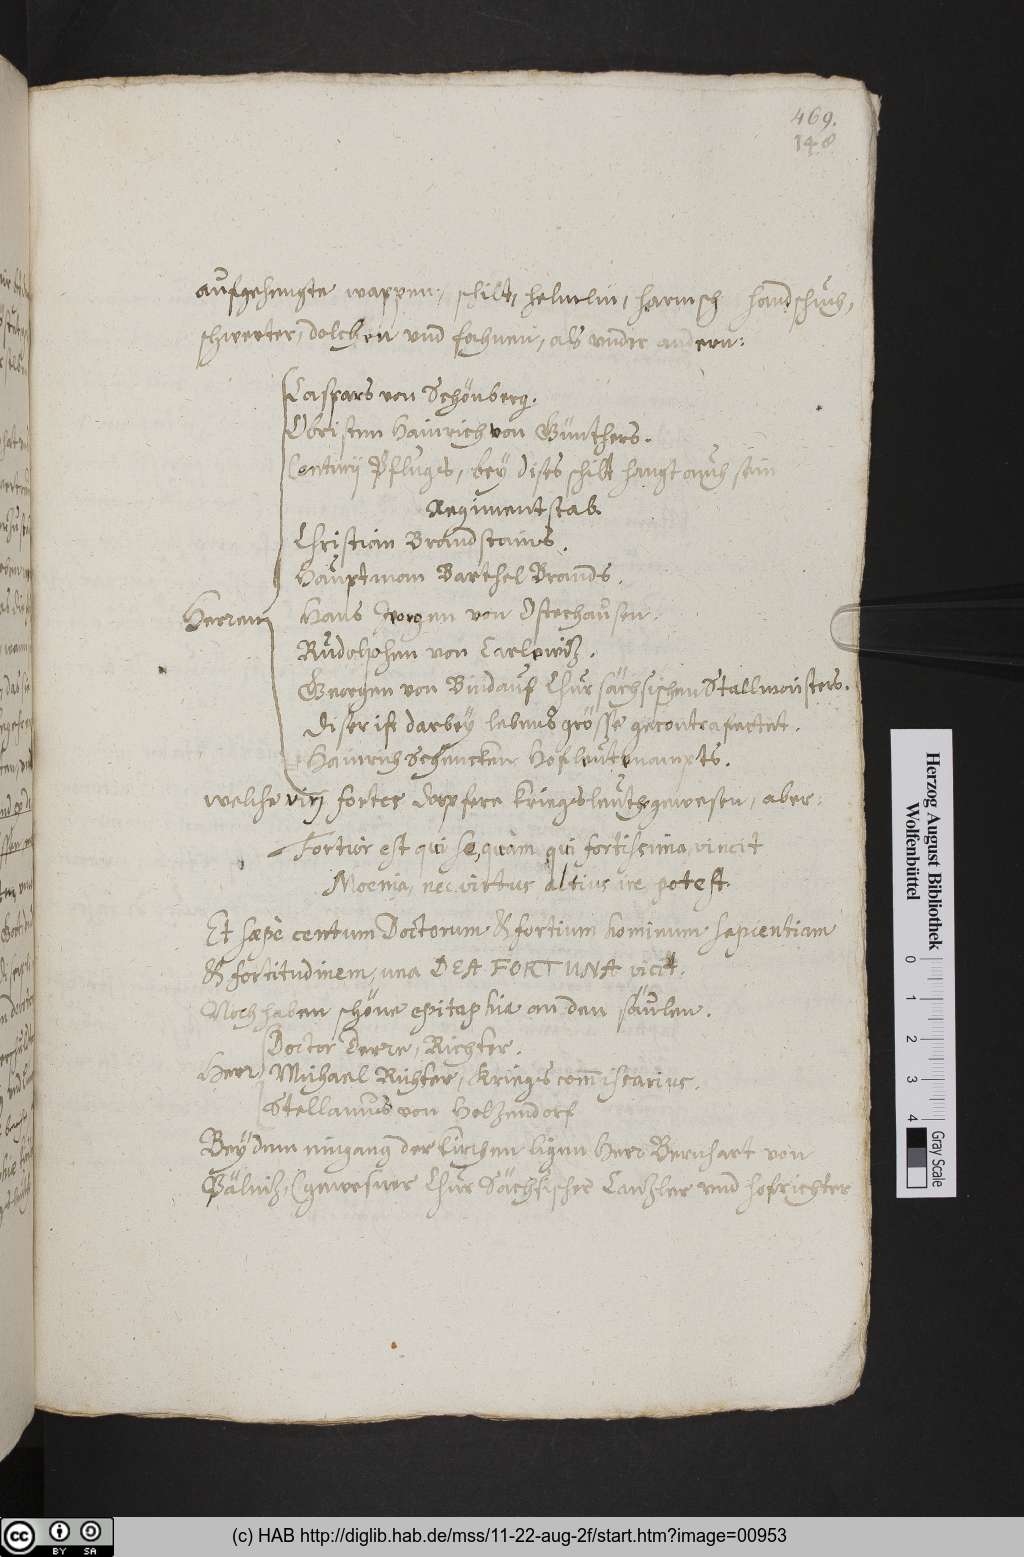 469.
148
aufgehengte wappen, schilt, helmlin, harnisch handschuch,
schwerter, dolchen vnd fahnen, als vnder andern:
Caspars von Schönberg.
Obristen Hainrich von Günthers.
Centurij Pflugs, bey dises schilt hangt auch sein
Regimentstab.
Christian Brandstains.
Hauptman Barthel Brands.
Herren Hans Jörgen von Osterhausen.
Rudolphen von Carlowitz.
Georgen von Bindauf Chur sächsischen Stallmaisters.
diser ist darbey lebens grösse gecontrafectet.
Hainrich Schencken Hofleutenampts.
welche viri fortes dapfere kriegsleuth gewesen, aber:
Fortior est qui se, quàm qui fortissima, vincit
Moenia, nec virtus altius ire potest.
Et sæpè centum Doctorum & fortium hominum sapientiam
& fortitudinem, una DEA FORTUNA vicit.
Noch haben schöne epitaphia an den säulen.
Doctor Derre, Richter.
Herr Michael Richter, Kriegs commissarius.
Stellanus von Holzendorf
Bey dem eingang der kirchen ligen Herr Bernhart von
Pölnitz, gewesner Chur Sächsischer Cantzler vnd hofrichter
Herzog August Bibliothek
Wolfenbüttel
0 1 2 3 4
Gray Scale
cc BY SA
(c) HAB http://diglib.hab.de/mss/11-22-aug-2f/start.htm?image=00953